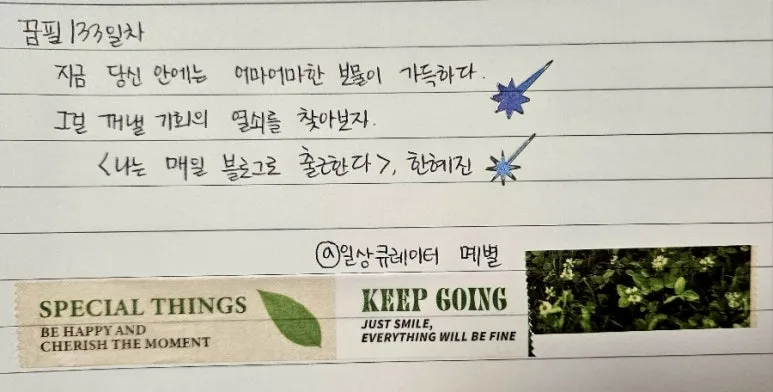 꿈필 133일차
지금 당신 안에는 어마어마한 보물이 가득하다.
그걸 꺼낼 기회의 열쇠를 찾아보자.
<나는 매일 블로그로 출근한다>, 한혜진
@일상큐레이터 메별
SPECIAL THINGS
BE HAPPY AND
CHERISH THE MOMENT
KEEP GOING
JUST SMILE,
EVERYTHING WILL BE FINE